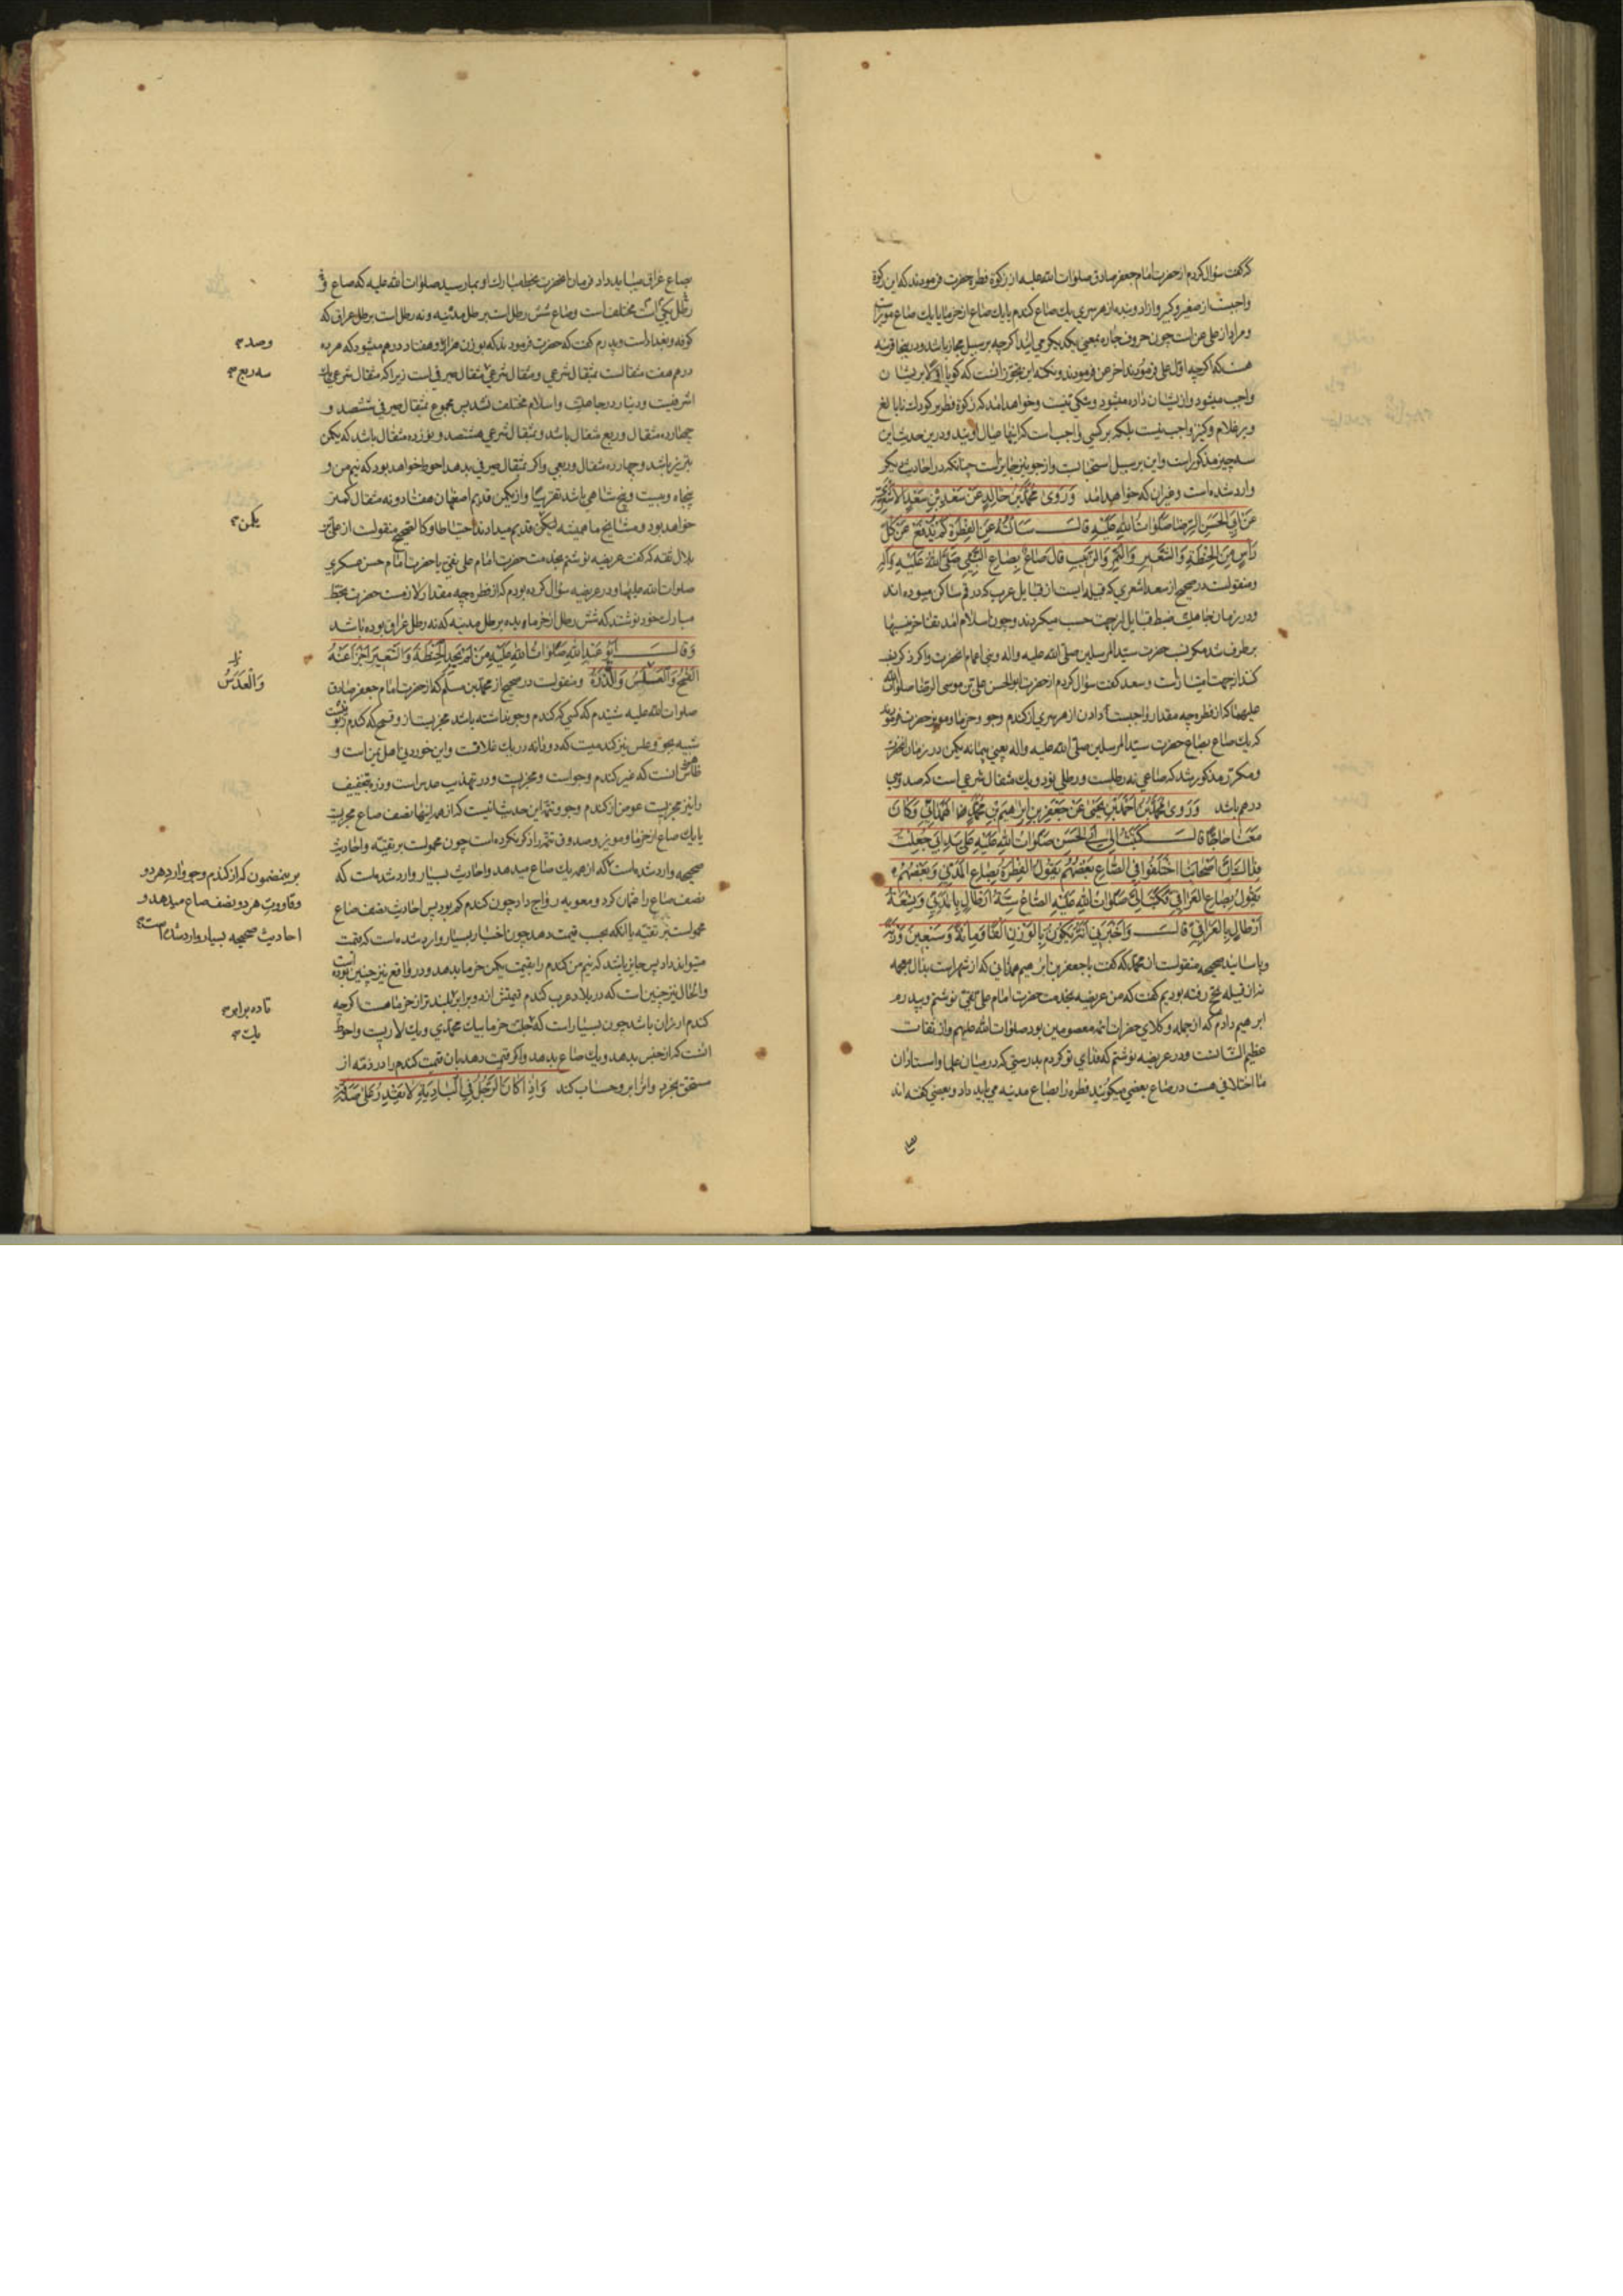 که گفت سؤال کردم از حضرت امام جعفر صادق صلوات الله علیه از زکوة فطره حضرت فرمودند که این زکوة
واجبست از صغیر و کبیر و ازاد و بنده از هر سری یك صاع کندم یا یك صاع از خرما یا یك صاع مویز است
و مراد از علی عن است چون حروف جاره بمعنی یکدیکر می ایند اکر چه بر سبیل مجاز باشد و در اینجا قرینه
هست که اکر چه اول علی فرمودند اخر عن فرمودند و نکته این تجوز انست که کویا اولا بر ایشان
واجب میشود و از ایشان داده میشود و شکی نیست و خواهد امد که زکوة فطر بر کودك نابالغ
و بر غلام و کنیز واجب نیست بلکه بر کسی واجب است که اینها عیال اویند و در این حدیث این
سه چیز مذکور است و این بر سبیل استحبابست و از جو نیز جایز است چنانکه در احادیث دیکر
وارد شده است و غیر ان که خواهد امد وَرَوی مُحَمَّدُ بْنُ خَالِدٍ عَنْ سَعْدِ بْنِ سَعْدٍ الاَشْعَرِیِّ
عَنْ اَبِی الحَسَنِ الرِّضَا صَلَوَاتُ اللهِ عَلَیْهِ قَالَ سَاَلْتُهُ عَنِ الفِطْرَةِ کَمْ تُدْفَعُ عَنْ کُلِّ
رَاْسٍ مِنَ الحِنْطَةِ وَالشَّعِیرِ وَالتَّمْرِ وَالزَّبِیبِ قَالَ صَاعٌ بِصَاعِ النَّبِیِّ صَلَّی اللهُ عَلَیْهِ وَآلِهِ
و منقولست در صحیح از سعد اشعری که قبیله ایست از قبایل عرب که در قم ساکن میبوده اند
و در زمان جاهلیت ضبط قبایل از جهت حسب میکردند و چون اسلام امد تفاخر نسبها
بر طرف شد مکر نسب حضرت سید المرسلین صلی الله علیه و اله و بنی اعمام انحضرت و اکر ذکر نسب
کنند از جهت امتیاز است و سعد کفت سؤال کردم از حضرت ابو الحسن علی بن موسی الرضا صلوات الله
علیهما که از فطره چه مقدار واجبست دادن از هر سری از کندم و جو و خرما و مویز حضرت فرمودند
که یك صاع بصاع حضرت سید المرسلین صلی الله علیه و اله یعنی پیمانه یکمن در زمان انحضرت
و مکرر مذکور شد که صاعی نه رطلست و رطلی نود و یك مثقال شرعی است که صد و سی
درهم باشد وَرَوی مُحَمَّدُ بْنُ اَحْمَدَ بْنِ یَحْیی عَنْ جَعْفَرِ بْنِ اِبْرَاهِیمَ بْنِ مُحَمَّدٍ الهَمْدَانِیِّ وَکَانَ
مَعَنَا حَاجًّا قَالَ کَتَبْتُ اِلی اَبِی الحَسَنِ صَلَوَاتُ اللهِ عَلَیْهِ عَلی یَدَیْ اَبِی جُعِلْتُ
فِدَاكَ اِنَّ اَصْحَابَنَا اخْتَلَفُوا فِی الصَّاعِ بَعْضُهُمْ یَقُولُ الفِطْرَةُ بِصَاعِ المَدَنِیِّ وَبَعْضُهُمْ
یَقُولُ بِصَاعِ العِرَاقِیِّ فَکَتَبَ اِلَیَّ صَلَوَاتُ اللهِ عَلَیْهِ الصَّاعُ سِتَّةُ اَرْطَالٍ بِالمَدَنِیِّ وَتِسْعَةُ
اَرْطَالٍ بِالعِرَاقِیِّ قَالَ وَاَخْبَرَنِی اَنَّهُ یَکُونُ بِالوَزْنِ اَلْفًا وَمِائَةً وَسَبْعِینَ وَزْنَةً
و باسانید صحیحه منقولست از محمد که کفت با جعفر بن ابرهیم همدانی که از شهر است بذال معجمه
نه از قبیله بحج رفته بودیم کفت که من عریضه بخدمت حضرت امام علی نقی نوشتم و بپدرم
ابرهیم دادم که از جمله وکلای حضرات ائمه معصومین بود صلوات الله علیهم و از ثقات
عظیم الشانست و در عریضه نوشتم که فدای تو کردم بدرستی که در میان علما و استادان
ما اختلافی هست در صاع بعضی میکویند فطره را بصاع مدینه می باید داد و بعضی کفته اند
بصاع عراق میباید داد فرمان انحضرت بخط مبارك او بما رسید صلوات الله علیه که صاع و
رطل یکی است مختلف است و صاع شش رطل است برطل مدینه و نه رطل است برطل عراق که
کوفه و بغداد است و پدرم کفت که حضرت فرمودند که بوزن هزار و هفتاد درهم میشود که هر ده
وصد
درم هفت مثقالست بمثقال شرعی و مثقال شرعی مثقال صیرفی است زیرا که مثقال شرعی یك
سه ربع
اشرفیست و دینار در جاهلیت و اسلام مختلف نشد پس مجموع بمثقال صیرفی ششصد و
چهارده مثقال و ربع مثقال باشد و بمثقال شرعی هشتصد و نوزده مثقال باشد که یکمن
تبریز باشد و چهارده مثقال و ربعی و اکر بمثقال صیرفی بدهد احوط خواهد بود که نیم من و
پنجاه و بیست و پنج شاهی باشد تقریبا و از یکمن قدیم اصفهان هفتاد و نه مثقال کمتر
خواهد بود و مشایخ ما همیشه یکمن قدیم میدادند احتیاطا و کالصحیح منقولست از علی بن
یکمن
بلال ثقه که کفت عریضه نوشتم بخدمت حضرت امام علی نقی یا حضرت امام حسن عسکری
صلوات الله علیهما و در عریضه سؤال کرده بودم که از فطره چه مقدار لازمست حضرت بخط
مبارك خود نوشتند که شش رطل از خرما بده برطل مدینه که نه رطل عراقی بوده باشد
وَقَالَ اَبُو عَبْدِ اللهِ صَلَوَاتُ اللهِ عَلَیْهِ مَنْ لَمْ یَجِدِ الحِنْطَةَ وَالشَّعِیرَ اَجْزَاَ عَنْهُ
القَمْحُ وَالعَلَسُ وَالذُّرَةُ و منقولست در صحیح از محمد بن مسلم که از حضرت امام جعفر صادق
وَالْعَدَسُ
صلوات الله علیه شنیدم که کسی که کندم و جو نداشته باشد مجزیست از و قمح که کندم
شبیه بجو و علس نیز کندمیست که دو دانه در یك غلافست و این خوردنی اهل یمن است و
ظاهرش انست که غیر کندم و جو است و مجزیست و در تهذیب عدس است و ذره بتخفیف
را نیز مجزیست عوض از کندم و جو و تتمه این حدیث اینست که از همه اینها نصف صاع مجزیست
یا یك صاع از خرما و مویز و صدوق تتمه را ذکر نکرده است چون محمولست بر تقیه و احادیث
صحیحه وارد شده است که از همه یك صاع میدهد و احادیث بسیار وارد شده است که
بر ینمضمون که از کندم و جو و ارد هر دو
و قاووت هر دو نصف صاع میدهد و
احادیث صحیحه بسیار وارد شده است
نصف صاع را عثمان کرد و معویه رواج داد چون کندم کم بود پس احادیث نصف صاع
محمولست بر تقیه یا انکه بحسب قیمت دهد چون اخبار بسیار وارد شده است که قیمت
میتواند داد پس جایز باشد که نیم من کندم را بقیمت یکمن خرما بدهد و در واقع نیز چنین بوده است
و الحال نیز چنین است که در بلاد عرب کندم قیمتش انه و برابر بلندتر از خرما هست اکر چه
تا ده برابر
کندم ارزان باشد چون بسیار است که خرما بیك محمدی و یك لاریست و احوط
یلت
انست که از جنس بدهد و یك صاع بدهد و اکر قیمت دهد بان قیمت کندم را در ذمه از
مستحق بخرد و انرا بر و حساب کند وَاِذَا کَانَ الرَّجُلُ فِی البَادِیَةِ لَا یَقْدِرُ عَلی صَدَقَةِ